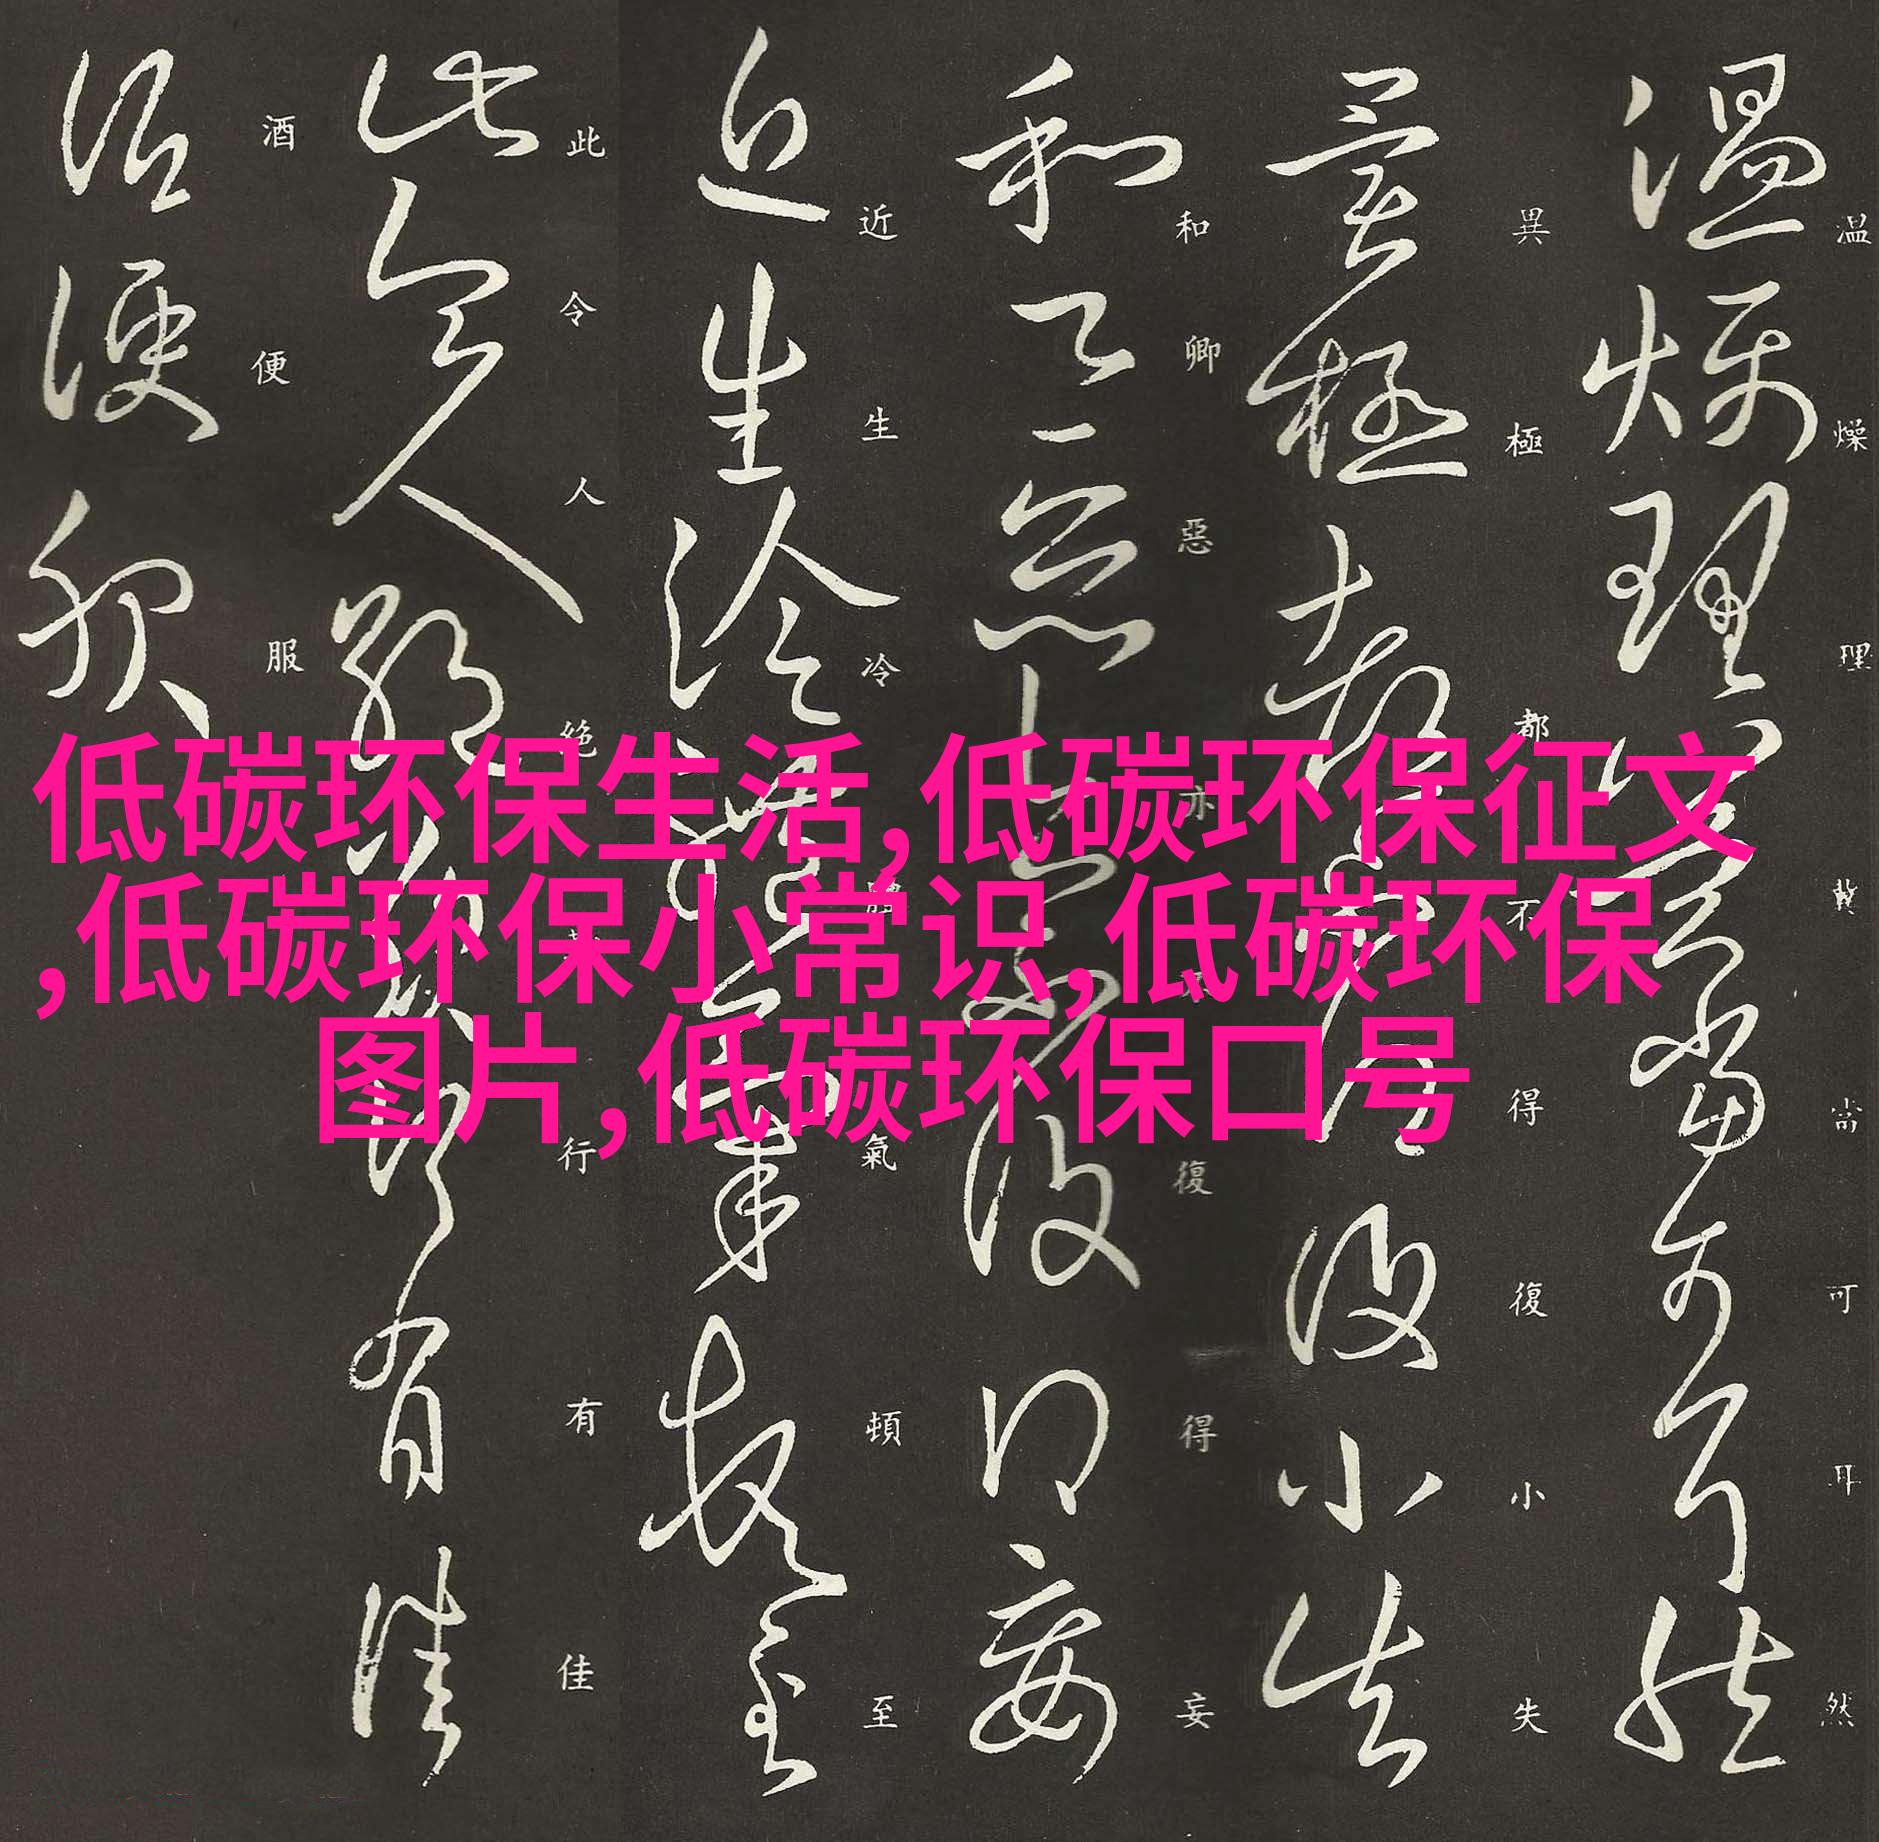 低碳环保生活,低碳环保征文
,低碳环保小常识,低碳环保
图片,低碳环保口号
温燥理冀尚可耳然
異極都不得復小失
和卿惡亦不復得妄
近生冷體氣頓至
此令人絶行有佳
酒便服